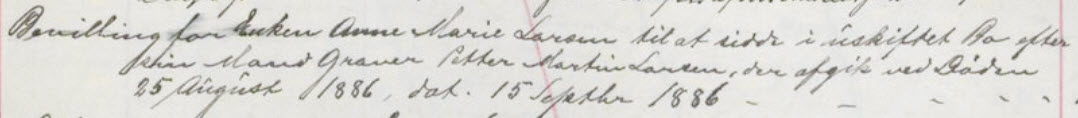 Bevilling for Enken Anne Marie Larsen til at sidde i uskiftet Bo efter
sin Mand Graver Petter Martin Larsen, der afgik ved Døden
25 August 1886, dat. 15 Septbr 1886 - - - - -